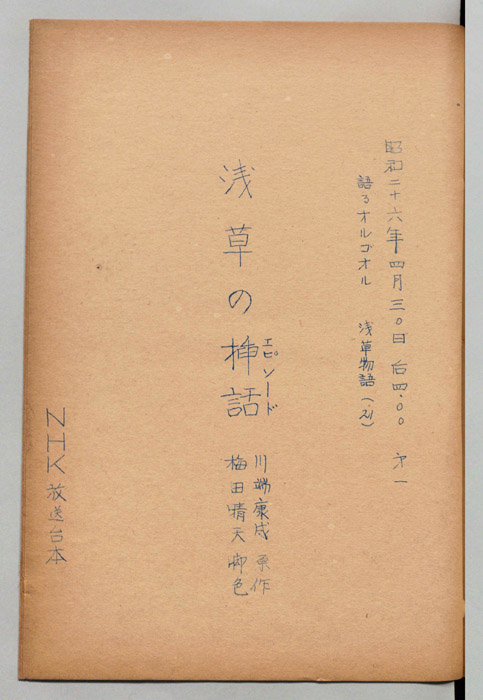 昭和二十六年四月三〇日 后四.〇〇 才一
語るオルゴオル 浅草物語(2)
浅草の挿話
エピソード
川端康成 原作
梅田晴夫 脚色
NHK放送台本